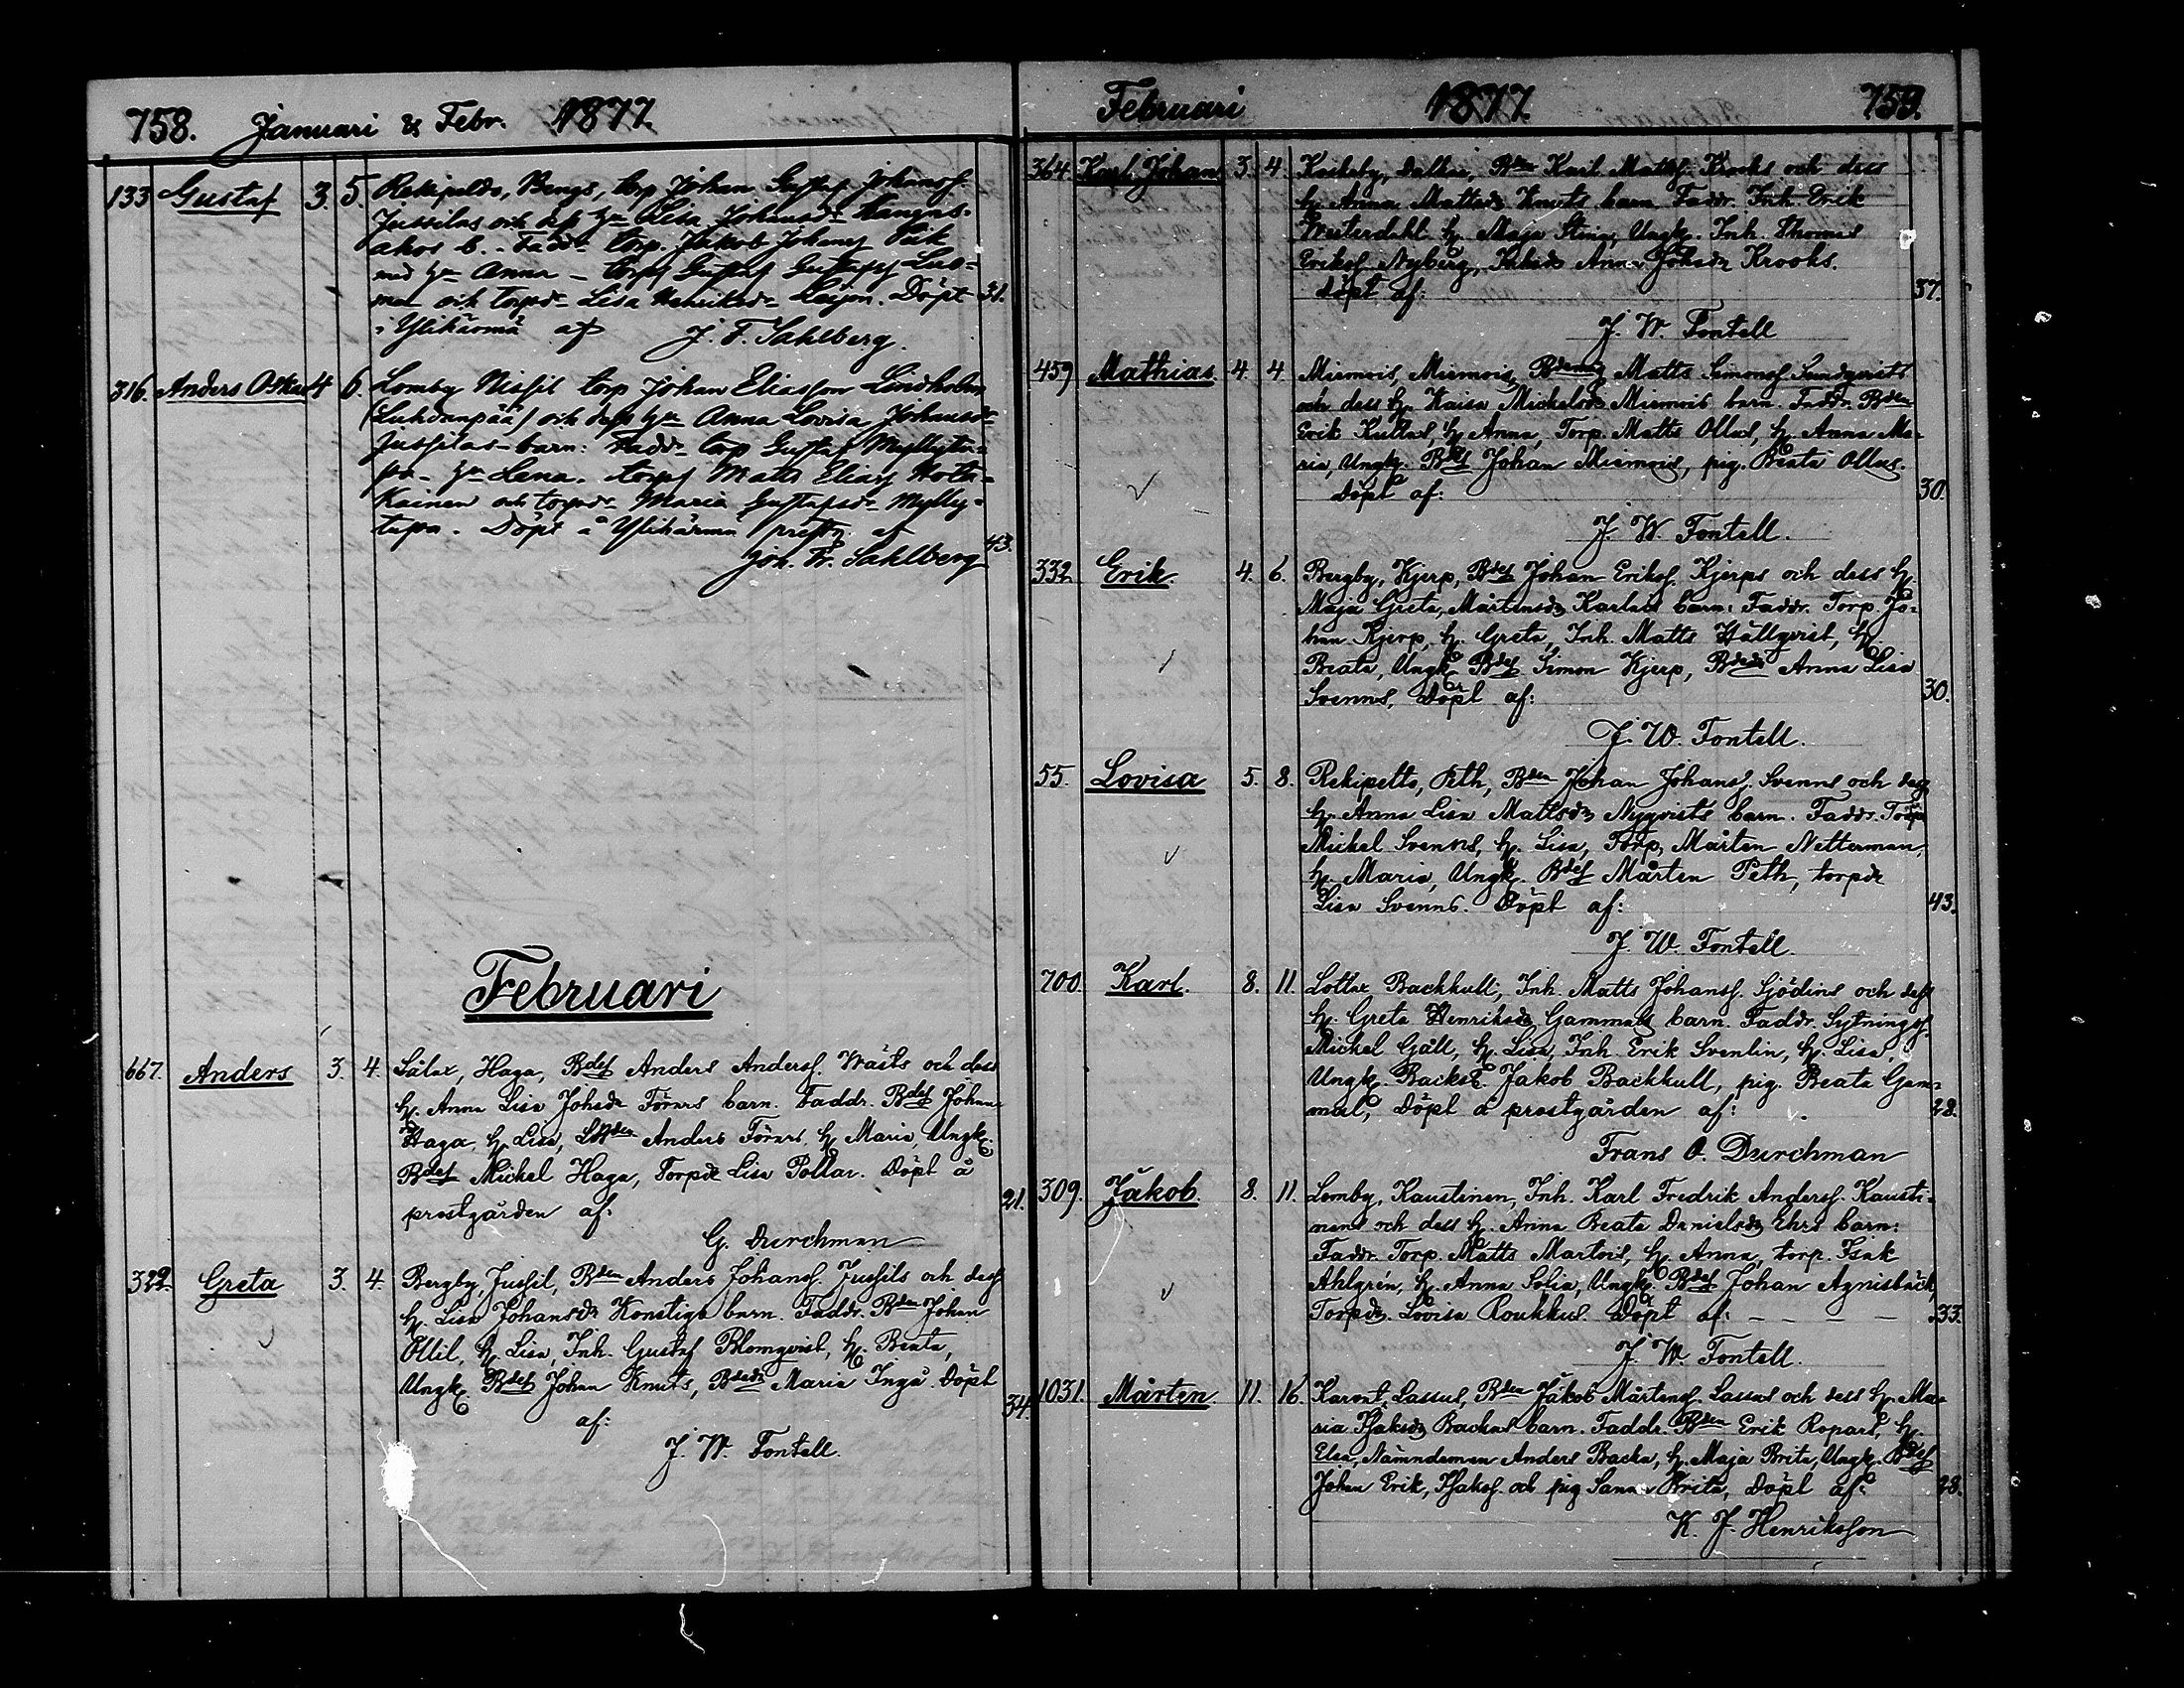 758. Januari & Febr. 1877.
133 Gustaf 3. 5. Rekipeldo, Bengs, torp Johan Gustaf Johansf.
Jussilas och desf hu Lisa Johansdr Kangas-
akos b. Faddr torp. Jakob Johansf
med hu Anna - torpsf Gustaf Gustafsf Luo-
ma och torpdr Lisa Henriksdr Leijon. Döpt 31.
i Ylihärmä af J. F. Sahlberg.
316. Anders Oskar 4 6. Lomby Nissil torp Johan Eliasson Lindholm
(Luhdanpää) och desf hu Anna Lovisa Johansdr
Jussilas barn: Fadd- torp Gustaf Myllytu-
pa - hu Lena. torpsf Matts Eliasf Hota-
kainen och torpdr Maria Gustafsdr Mylly-
tupa. Döpt å Ylihärmä prestg. af 43.
Joh. Fr. Sahlberg
Februari
667. Anders 3. 4. Sålax, Haga, Bdesf Anders Andersf. Wäits och dess
h. Anna Lisa Johsdr Förars barn. Faddr. Bdesf Johan
Haga, h. Lisa, Anders Förars, h. Maria, Ungk.
Bdesf Mickel Haga, Torpdr Lisa Pollar. Döpt å
prestgården af: 21.
G. Durchman
322. Greta 3. 4. Bergby, Jussil, Bden Anders Johansf. Jussils och desf
h. Lisa Johansdr Konstiga barn. Faddr. Bden Johan
Ollil, h. Lisa, Inh. Gustaf Blomqvist, h. Beata,
Ungk. Bdesf Johan Knuts, Bdedr Maria Inga. Döpt 34.
af:
J. W. Fontell.
Februari 1877. 759.
364. Karl Johan 3. 4. Kaskeby, Dalkar, Bden Karl Mattsf. Krooks och dess
h. Anna Mattsdr Knuts barn. Faddr. Inh. Erik
Westerdahl h. Maja Stina, Ungk. Inh. Thomas
Eriksf. Nyberg, Anna Johsdr Krooks.
döpt af: 37.
J. W. Fontell
459 Mathias 4. 4 Miemois, Miemois, Matts Simonsf. Sundqvists
och dess h. Kaisa Mickelsdr Miemois barn. Faddr. Bden
Erik Kullas, h. Anna, Torp. Matts Ollus, h. Anna Ma-
ria, Ungk. Bdesf Johan Miemois, pig. Beata Ollus.
döpt af: 30.
J. W. Fontell.
332 Erik 4. 6. Bergby, Kjerp, Bdesf Johan Eriksf. Kjerps och dess h.
Maja Greta, Mårtensdr Karlas barn: Faddr. Torp. Jo-
han Kjerp, h. Greta, Inh. Matts Hällqvist, h.
Beata, Ungk. Bdesf Simon Kjerp, Bdedr Anna Lisa
Svenns, Döpt af: 30.
J. W. Fontell.
55. Lovisa 5. 8. Rekipelto, Peth, Bden Johan Johansf. Svenns och desf
h. Anna Lisa Mattsdr Nyqvists barn. Faddr. Torp
Mickel Svenns, h. Lisa, Torp, Mårten Netterman,
h. Maria, Ungk. Bdesf Mårten Peth, torpdr
Lisa Svenns. Döpt af: 43.
J. W. Fontell.
700. Karl. 8. 11. Lottax Backkull, Inh. Matts Johansf. Sjödins och desf
h. Greta Henriksdr Gammals barn. Faddr. Sytningsf.
Mickel Gåll, h. Lisa, Inh. Erik Svenlin, h. Lisa,
Ungk. Jakob Backkull, pig. Beata Gam-
mal, Döpt å prestgården af: 28.
Frans O. Durchman
309. Jakob 8. 11. Lomby, Kaustinen, Inh. Karl Fredrik Andersf. Kausti-
nens och dess h. Anna Beata Danielsdr Ehrs barn:
Faddr. Torp. Matts Martois, h. Anna, torp. Isak
Ahlgren, h. Anna Sofia, Ungk. Bdesf Johan Agnisbäck,
Torpdr. Lovisa Roukkus. Döpt af: 33.
J. W. Fontell.
1031. Mårten. 11. 16. Karvat, Lassus, Bden Jakob Mårtensf. Lassus och dess h. Ma-
ria Isaksdr Backas barn. Faddr. Bden Erik Ropars, h.
Elsa, Nämndeman Anders Backa, h. Maja Brita, Ungk. Bdesf
Johan Erik, Isaksf. och pig Sanna Brita, Döpt af: 28.
K. J. Henriksson